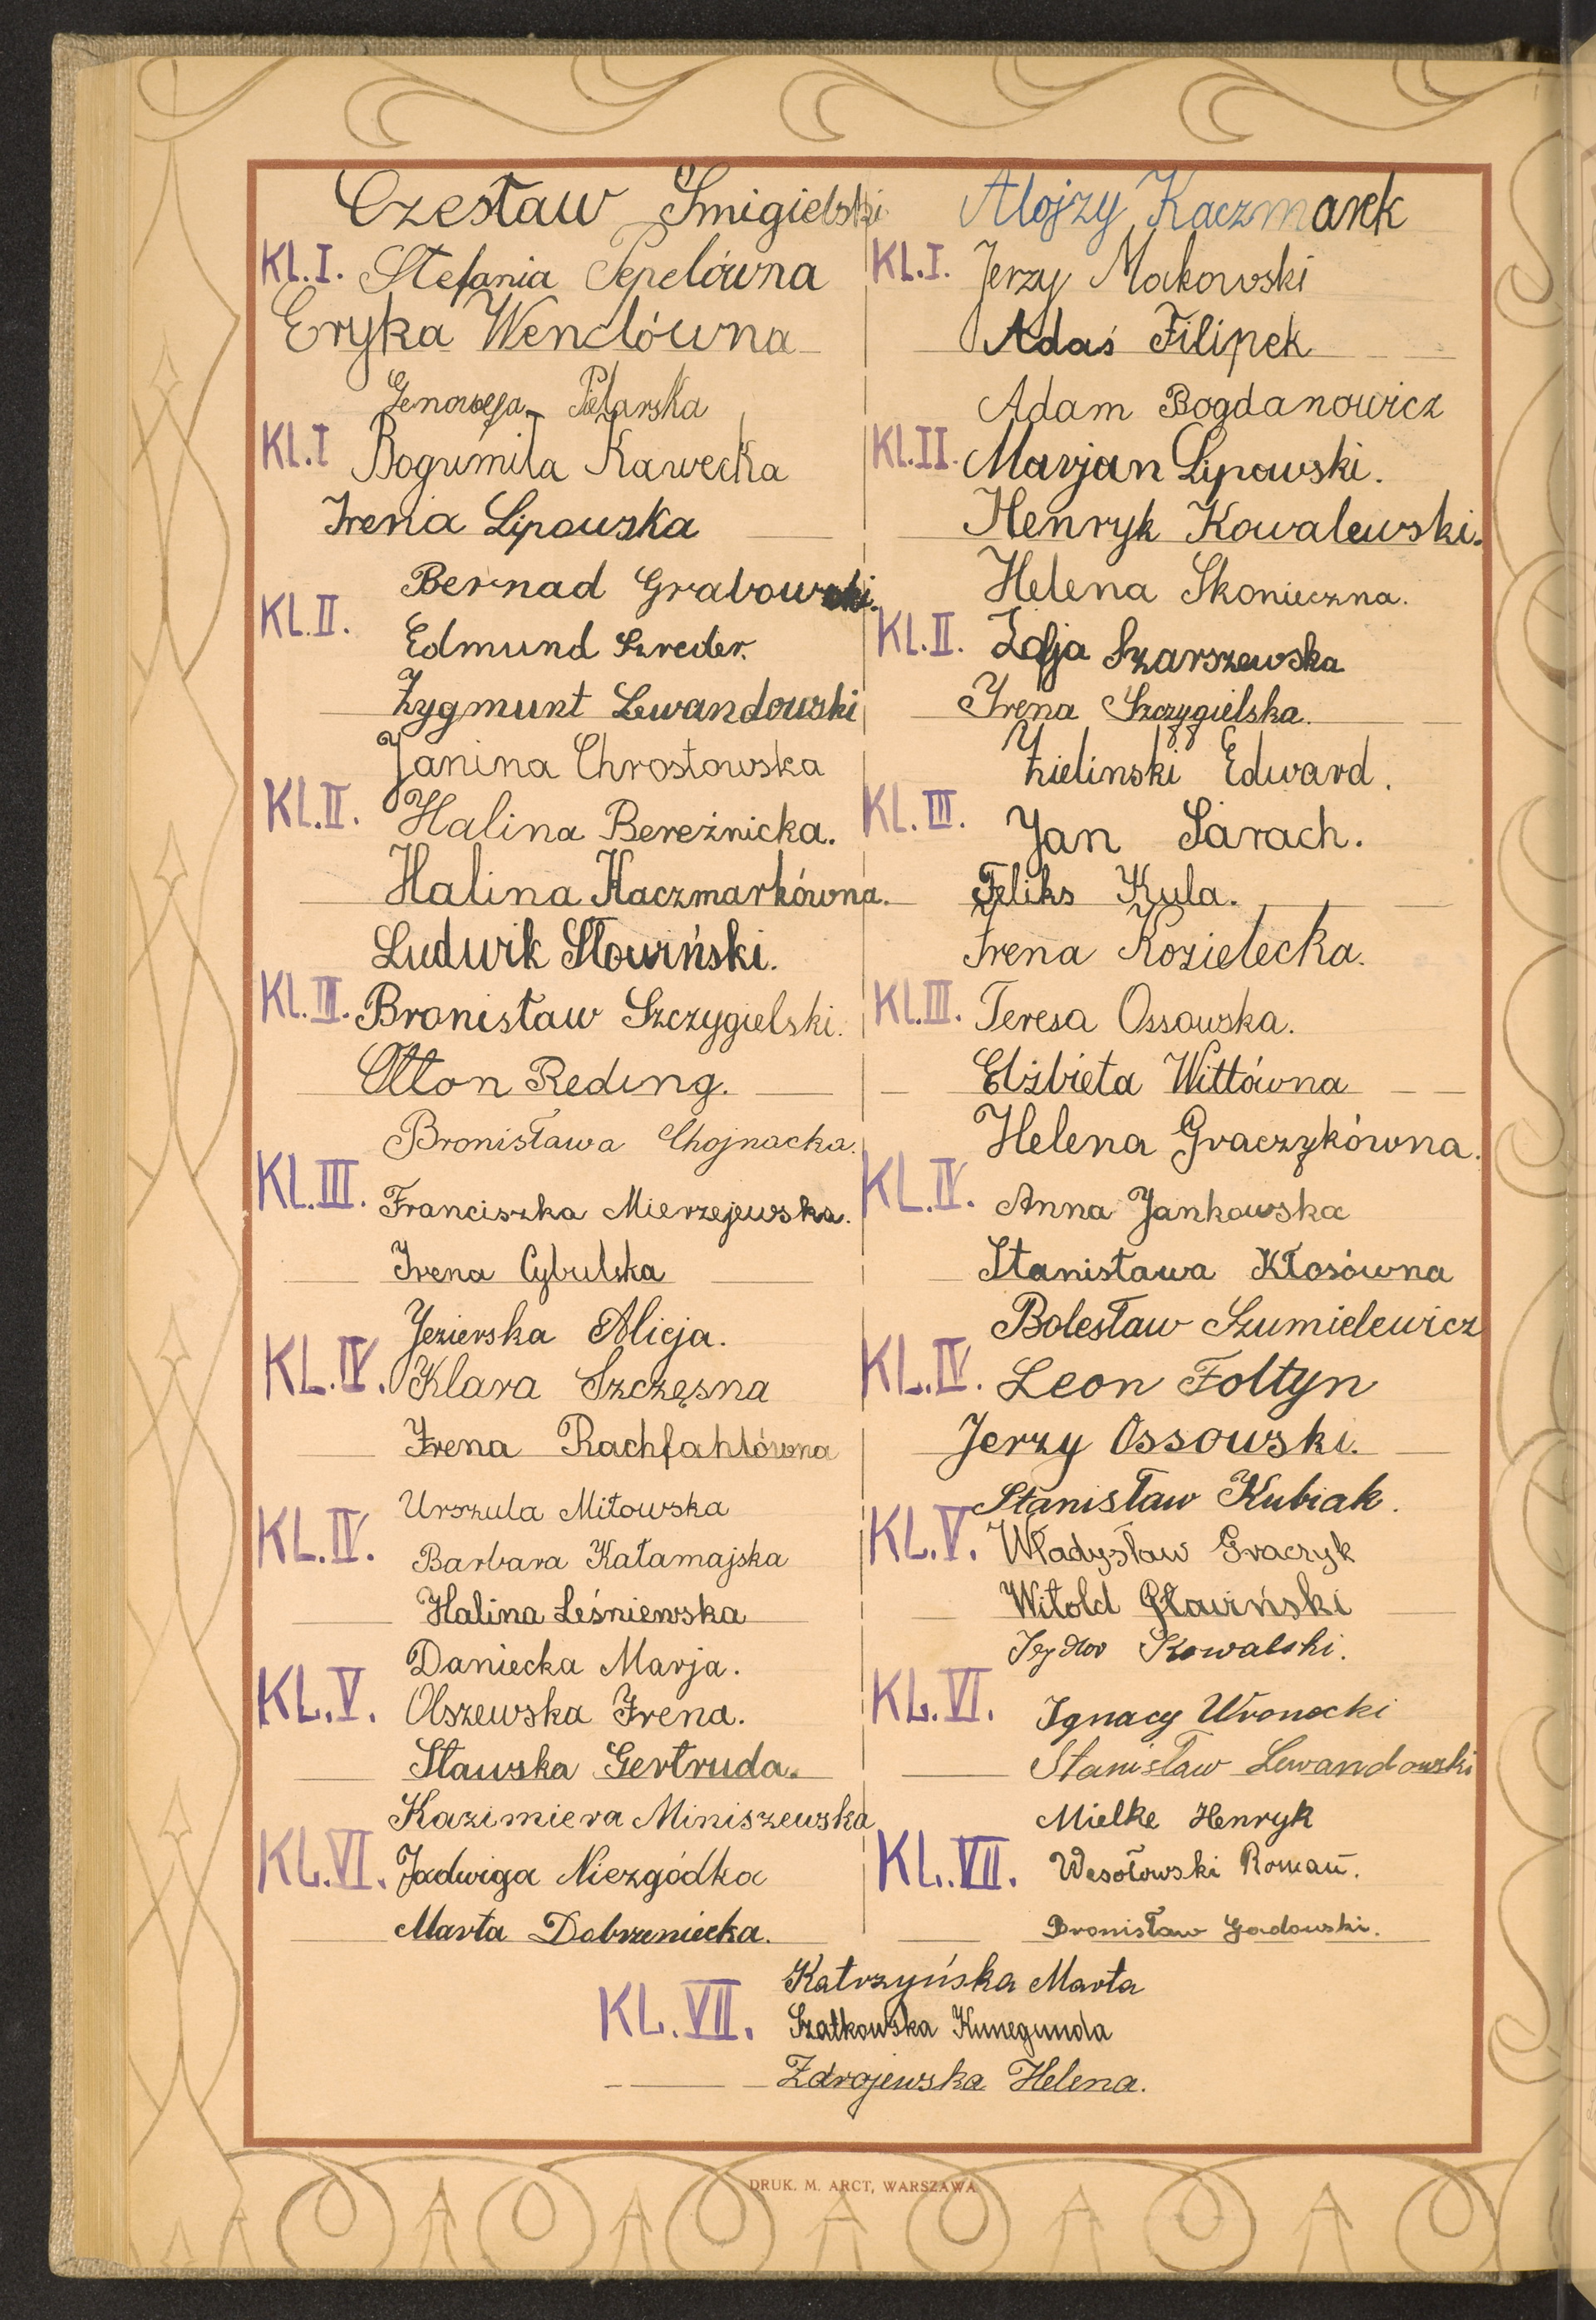 Czesław Śmigielski
Kl. I. Stefania Pepelówna
Eryka Wendówna
Genowefa Pielarska
Kl. I Bogumiła Kawecka
Irena Lipowska
Bernad Grabowski.
Kl. II.
Edmund Szreder.
Zygmunt Lewandowski
Janina Chrostowska
Kl. II. Halina Bereźnicka.
Halina Kaczmarkówna.
Ludwik Słowiński.
Kl. III. Bronisław Szczygielski.
Otton Reding.
Bronisława Chojnacka.
Kl. III. Franciszka Mierzejewska.
Irena Cybulska
Jezierska Alicja.
KL. IV. Klara Szczęsna
Irena Rachfahlówna
Urszula Miłowska
KL. IV. Barbara Katamajska
Halina Leśniewska
Daniecka Marja.
KL. V. Olszewska Irena.
Stawska Gertruda.
Kazimiera Miniszewska
KL. VI. Jadwiga Niezgódka
Marta Dobrzeniecka.
Alojzy Kaczmarek
Kl. I. Jerzy Makowski
Adaś Filipek
Adam Bogdanowicz
Kl. II. Marjan Lipowski.
Henryk Kowalewski.
Helena Skonieczna.
Kl. II. Zofja Szarszewska
Irena Szczygielska.
Zielinski Edward.
Kl. III. Jan Sarach.
Feliks Kula.
Irena Kozielecka.
Kl. III. Teresa Ossowska.
Elżbieta Wittówna
Helena Graczykówna.
KL. IV. Anna Jankowska
Stanisława Kłosówna
Bolesław Szumielewicz
KL. IV. Leon Foltyn
Jerzy Ossowski.
Stanisław Kubiak.
KL. V. Władysław Graczyk
Witold Gławiński
Kowalski.
KL. VI. Ignacy Wronecki
Stanisław Lewandowski
Mielke Henryk
KL. VII. Wesołowski Roman.
Bronisław Gadowski.
Katrzyńska Marta
KL. VII. Szatkowska Kunegunda
Zdrojewska Helena.
DRUK. M. ARCT, WARSZAWA